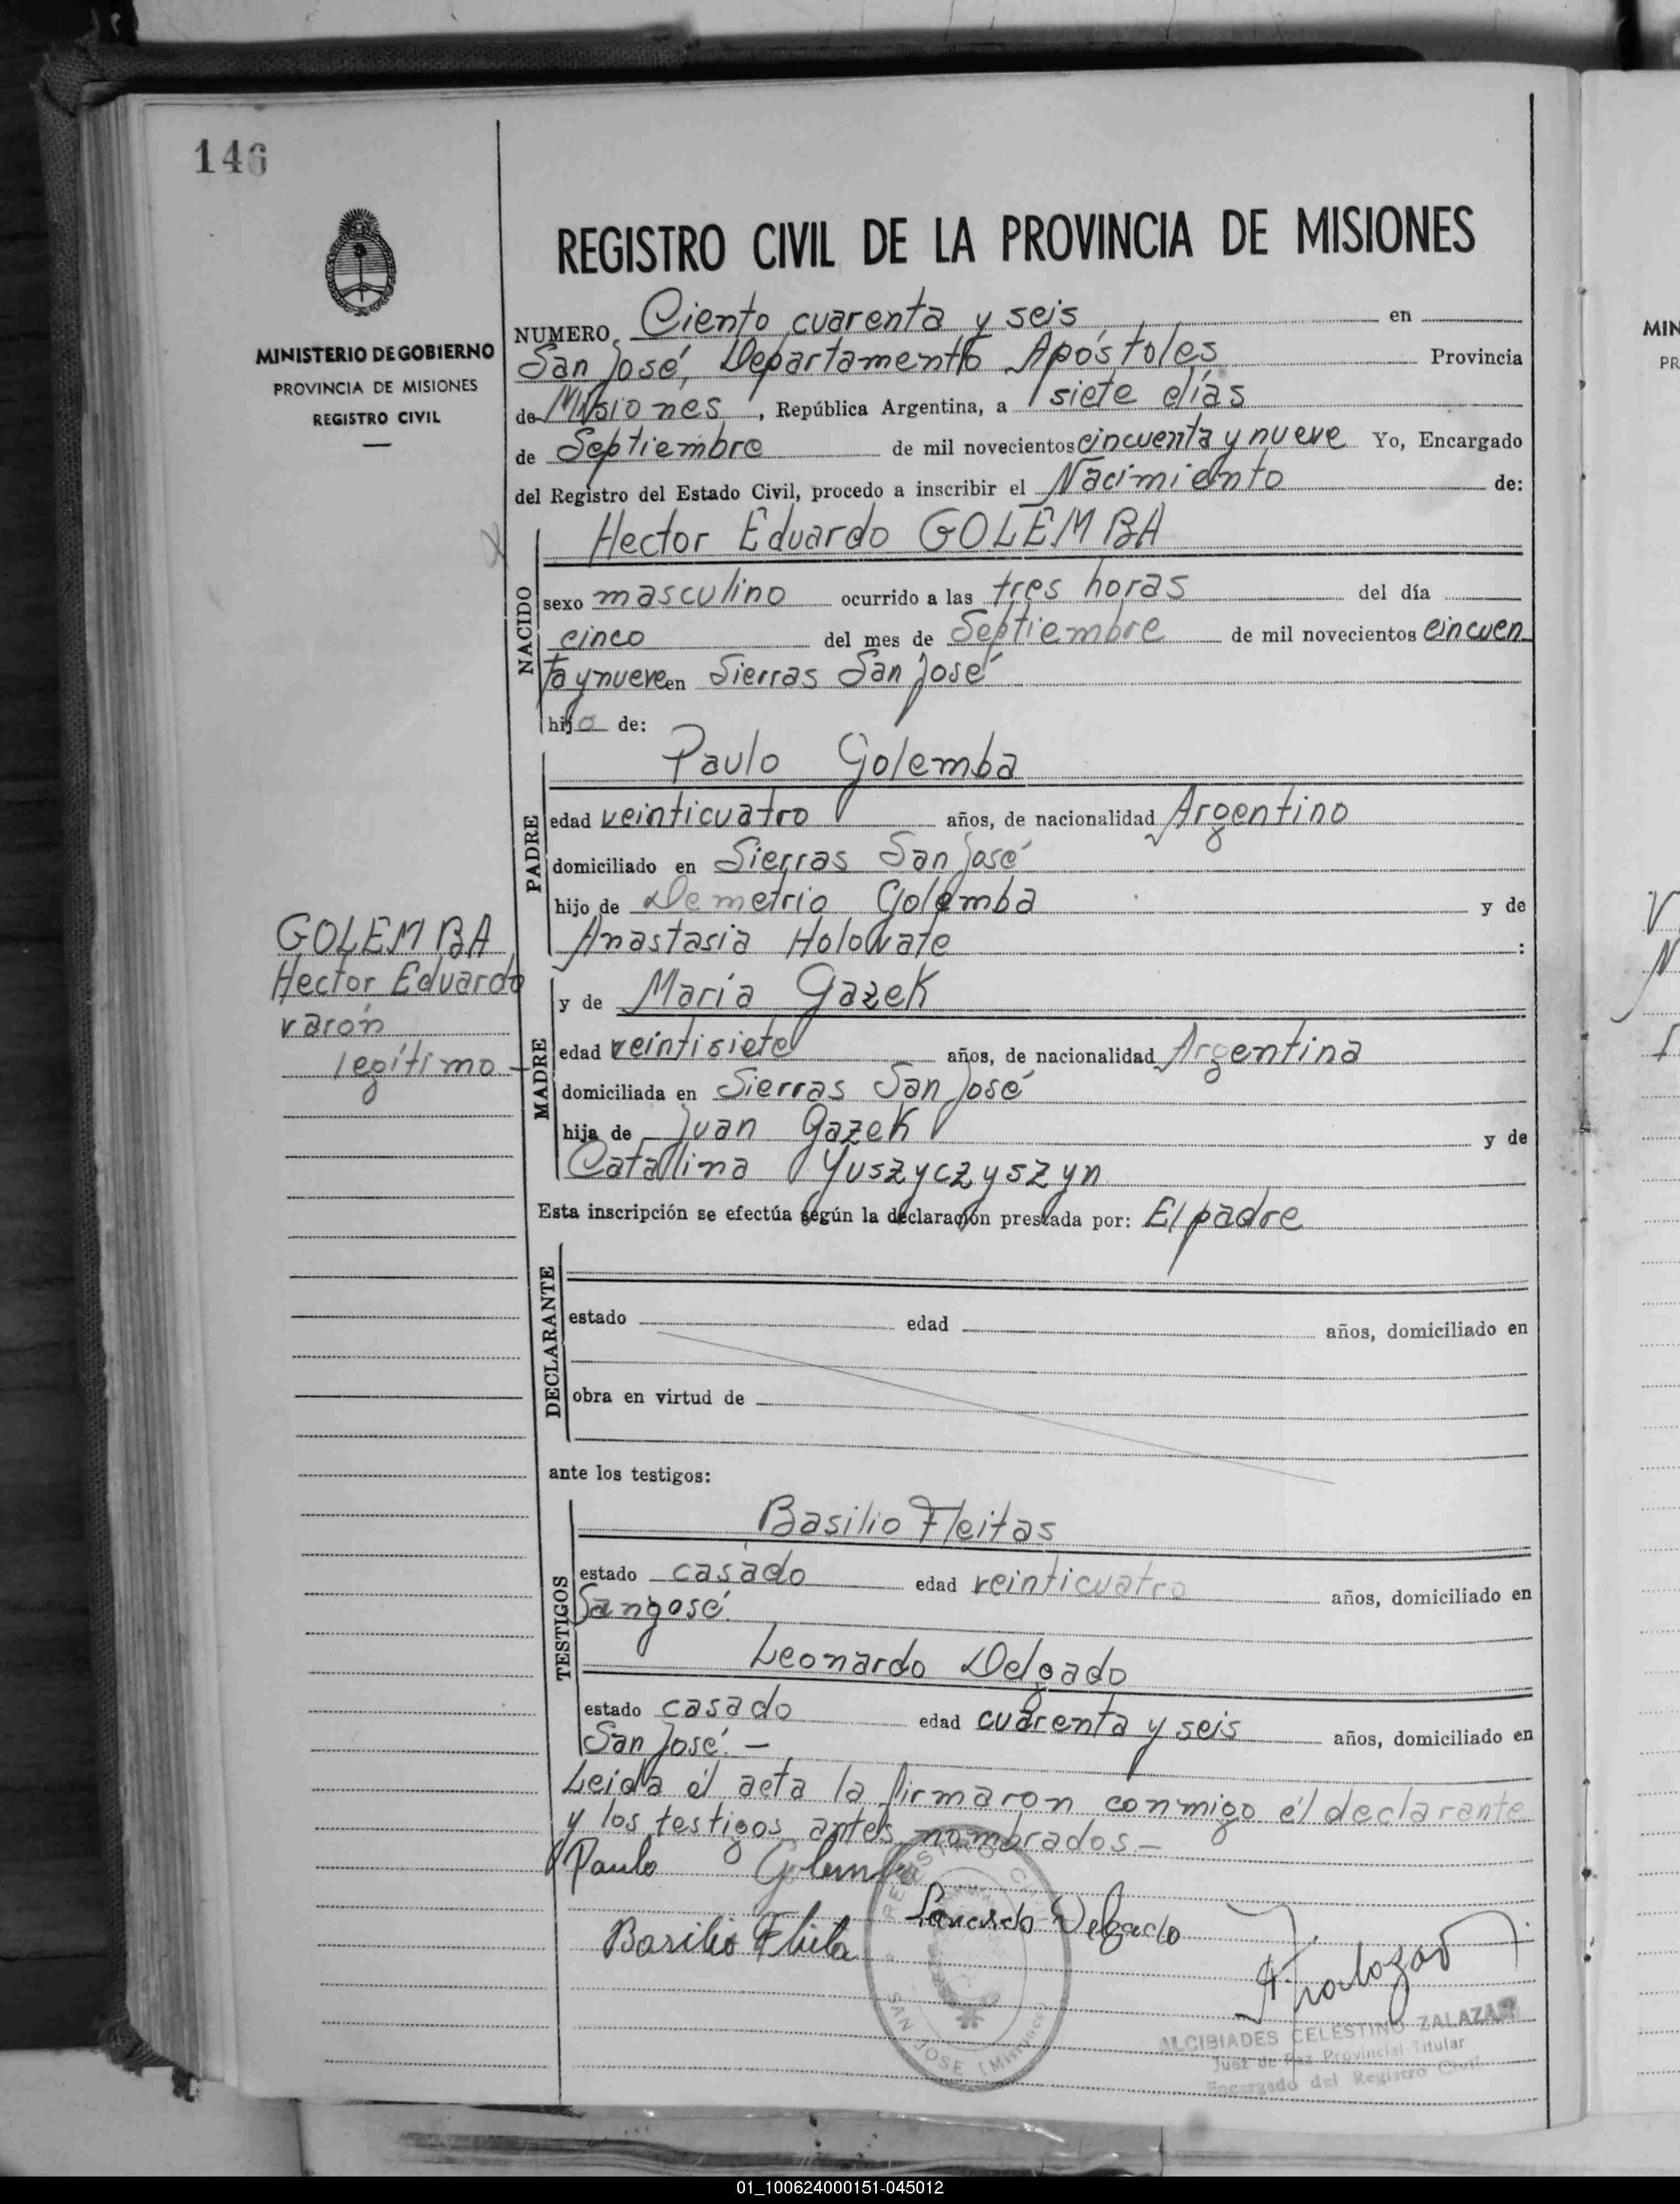 146
MINISTERIO DE GOBIERNO
PROVINCIA DE MISIONES
REGISTRO CIVIL
REGISTRO CIVIL DE LA PROVINCIA DE MISIONES
NUMERO Ciento cuarenta y seis en
San José, Departamento Apóstoles Provincia
de Misiones, República Argentina, a siete días
de Septiembre de mil novecientos cincuenta y nueve Yo, Encargado
del Registro del Estado Civil, procedo a inscribir el Nacimiento de:
NACIDO
Hector Eduardo GOLEMBA
sexo masculino ocurrido a las tres horas del día
cinco del mes de Septiembre de mil novecientos cincuen
ta y nueve en Sierras San José
hijo de:
PADRE
Paulo Golemba
edad veinticuatro años, de nacionalidad Argentino
domiciliado en Sierras San José
hijo de Demetrio Golemba y de
Anastasia Holowate :
GOLEMBA
Hector Eduardo
varón
legítimo -
MADRE
y de María Gazek
edad veintisiete años, de nacionalidad Argentina
domiciliada en Sierras San José
hija de Juan Gazek y de
Catalina Yuszyczyszyn
Esta inscripción se efectúa según la declaración prestada por: El padre
DECLARANTE
estado edad años, domiciliado en
obra en virtud de
ante los testigos:
TESTIGOS
Basilio Fleitas
estado casado edad veinticuatro años, domiciliado en
San José.
Leonardo Delgado
estado casado edad cuarenta y seis años, domiciliado en
San José. -
Leida el acta la firmaron conmigo el declarante
y los testigos antes nombrados. -
Paulo Golemba
Leonardo Delgado
Basilio
REGISTRO CIVIL
SAN JOSE (Misiones)
ALCIBIADES CELESTINO ZALAZAR
Juez de Paz Provincial Titular
Encargado del Registro Civil
MIN
PR
01_100624000151-045012